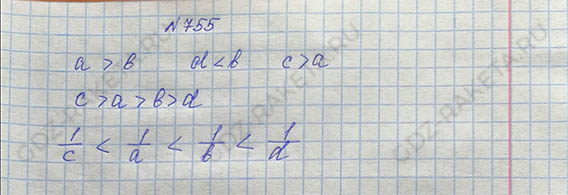 №755
a > b d < b c > a
c > a > b > d
1/c < 1/a < 1/b < 1/d
GDZ-RAKETA.RU
GDZ-RAKETA.RU
GDZ-RAKETA.RU